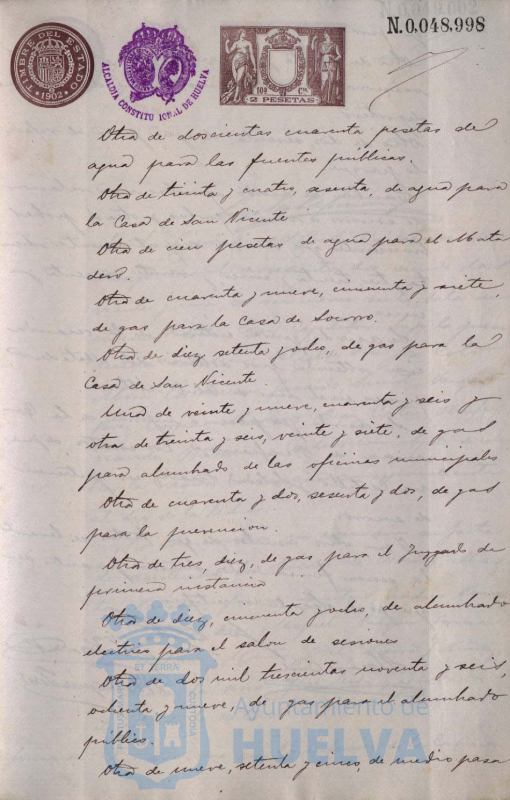 N.0,048,998
TIMBRE DEL ESTADO
1902
ALCALDIA CONSTITUCIONAL DE HUELVA
10ª Cse
2 PESETAS
Otra de doscientas cuarenta pesetas de
agua para las fuentes públicas.
Otra de treinta y cuatro, sesenta, de agua para
la Casa de San Vicente
Otra de cien pesetas de agua para el Mata
dero.
Otra de cuarenta y nueve, cincuenta y siete,
de gas para la Casa de Socorro.
Otra de diez, setenta y ocho, de gas para la
Casa de San Vicente.
Una de veinte y nueve, cuarenta y seis y
otra de treinta y seis, veinte y siete, de gas
para alumbrado de las oficinas municipales
Otra de cuarenta y dos, sesenta y dos, de gas
para la prevencion.
Otra de tres, diez, de gas para el Juzgado de
primera instancia
Otra de diez, cincuenta y ocho, de alumbrado
electrico para el salon de sesiones
Otra de dos mil trescientas noventa y seis,
ochenta y nueve, de gas para el alumbrado
público.
Otra de nueve, setenta y cinco, de medio pasa
ET TERRÆ
CUSTODIA
Ayuntamiento de
HUELVA